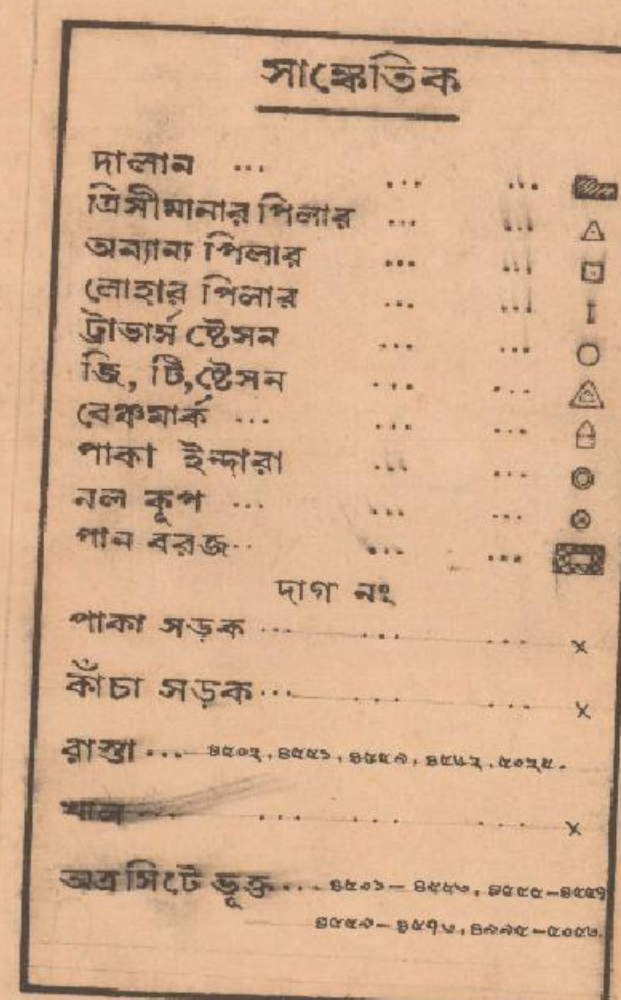 সাঙ্কেতিক
দালান ... ... ...
ত্রিসীমানার পিলার ... ...
অন্যান্য পিলার ... ...
লোহার পিলার ... ...
ট্রাভার্স ষ্টেসন ... ...
জি, টি, ষ্টেসন ... ...
বেঞ্চমার্ক ... ... ...
পাকা ইন্দারা ... ...
নল কূপ ... ... ...
পান বরজ ... ... ...
দাগ নং
পাকা সড়ক ... ... ... x
কাঁচা সড়ক ... ... ... x
রাস্তা ... ৪৫০২, ৪৫৫১, ৪৫৫৯, ৪৫৬২, ৫০২৫.
খাল ... ... ... x
অত্র সিটে ভুক্ত ... ৪৫০১ – ৪৫৫৩, ৪৫৫৫ – ৪৫৫৭
৪৫৫৯ – ৪৫৭৩, ৪৯৯৫ – ৫০৫৩.